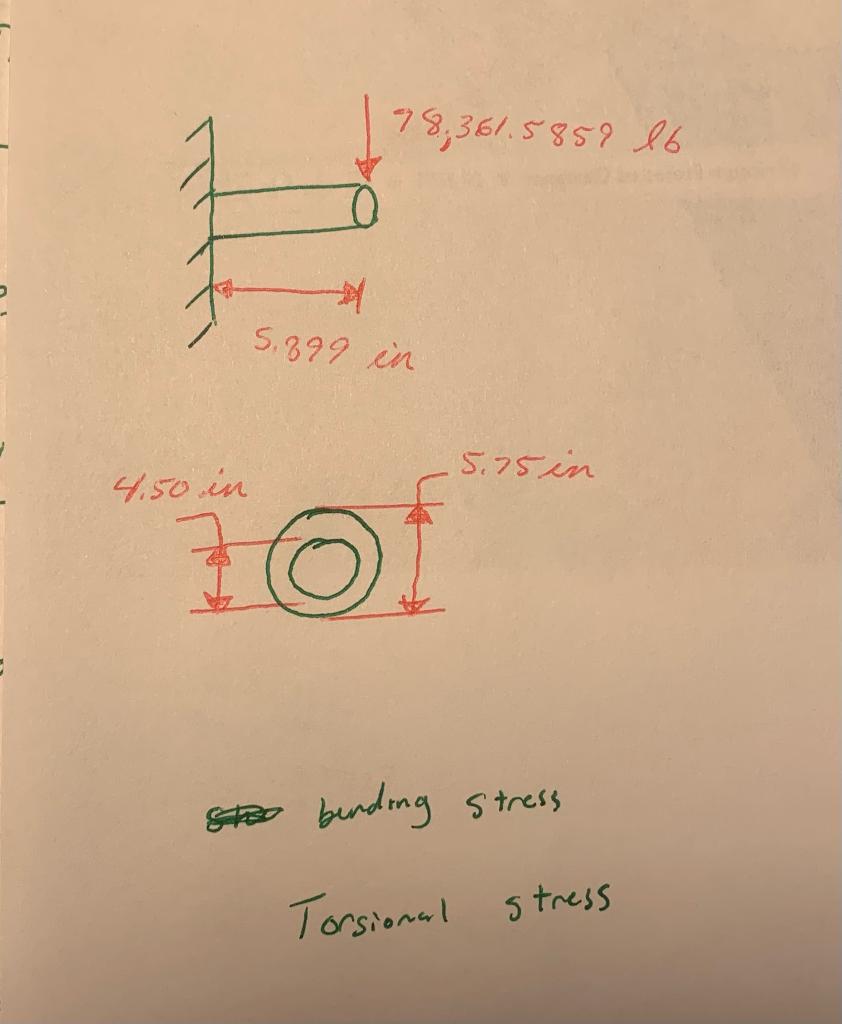 78,361.5859 lb
5.899 in
4.50 in
5.75 in
bending stress
Torsional stress